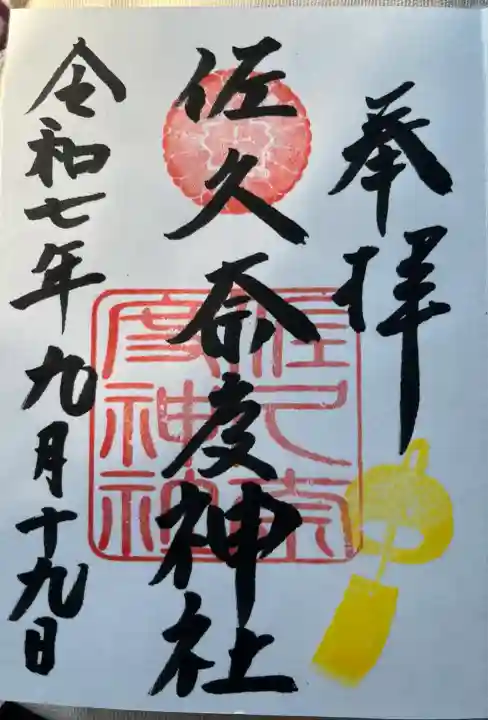 奉拝
佐久奈度神社
佐久奈度神社
令和七年九月十九日